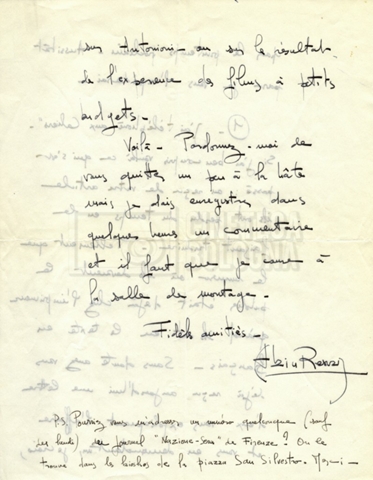 sur Antonioni - ou sur le résultat
de l'expérience des films à petits
budgets -
Voilà - Pardonnez-moi de
vous quitter un peu à la hâte
mais je dois enregistrer dans
quelques heures un commentaire
et il faut que je coure à
la salle de montage -
Fidèles amitiés -
Alain Resnais
P.S. Pourriez vous m'adresser un numéro quelconque (sauf
du lundi) du journal "Nazione-Sera" de Firenze ? On le
trouve dans les kiosches de la piazza San Silvestro.